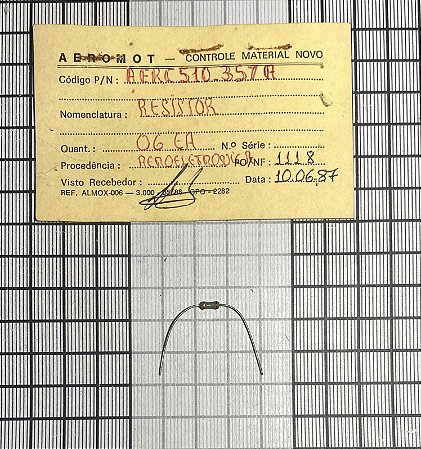 AEROMOT — CONTROLE MATERIAL NOVO
Código P/N : AERC510.357A
Nomenclatura : RESISTOR
Quant. : 06 EA N.º Série :
Procedência : AEROELETRONICA FO/NF : 1118
Visto Recebedor : Data : 10.06.87
REF. ALMOX-006 — 3.000 - 05/86 GFO - 2262